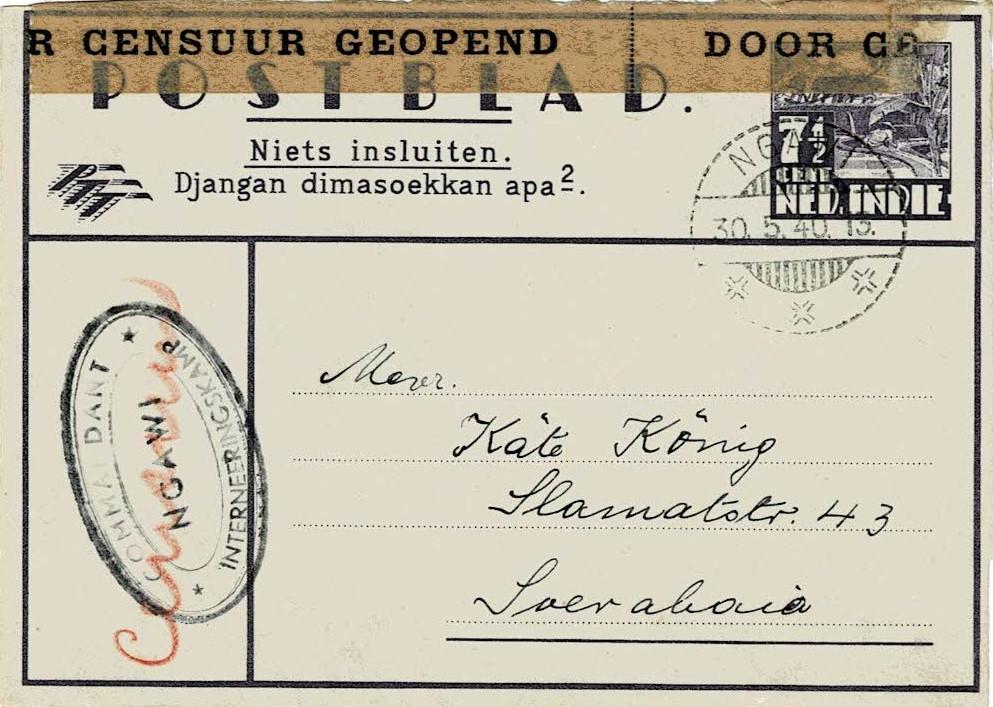 R CENSUUR GEOPEND DOOR GE
POSTBLAD.
Niets insluiten.
Djangan dimasoekkan apa².
PTT
7½
CENT
NED. INDIE
NGAWI
30.5.40.
COMMANDANT
NGAWI
INTERNEERINGSKAMP
Mevr.
Käte König
Slamatstr. 43
Soerabaia